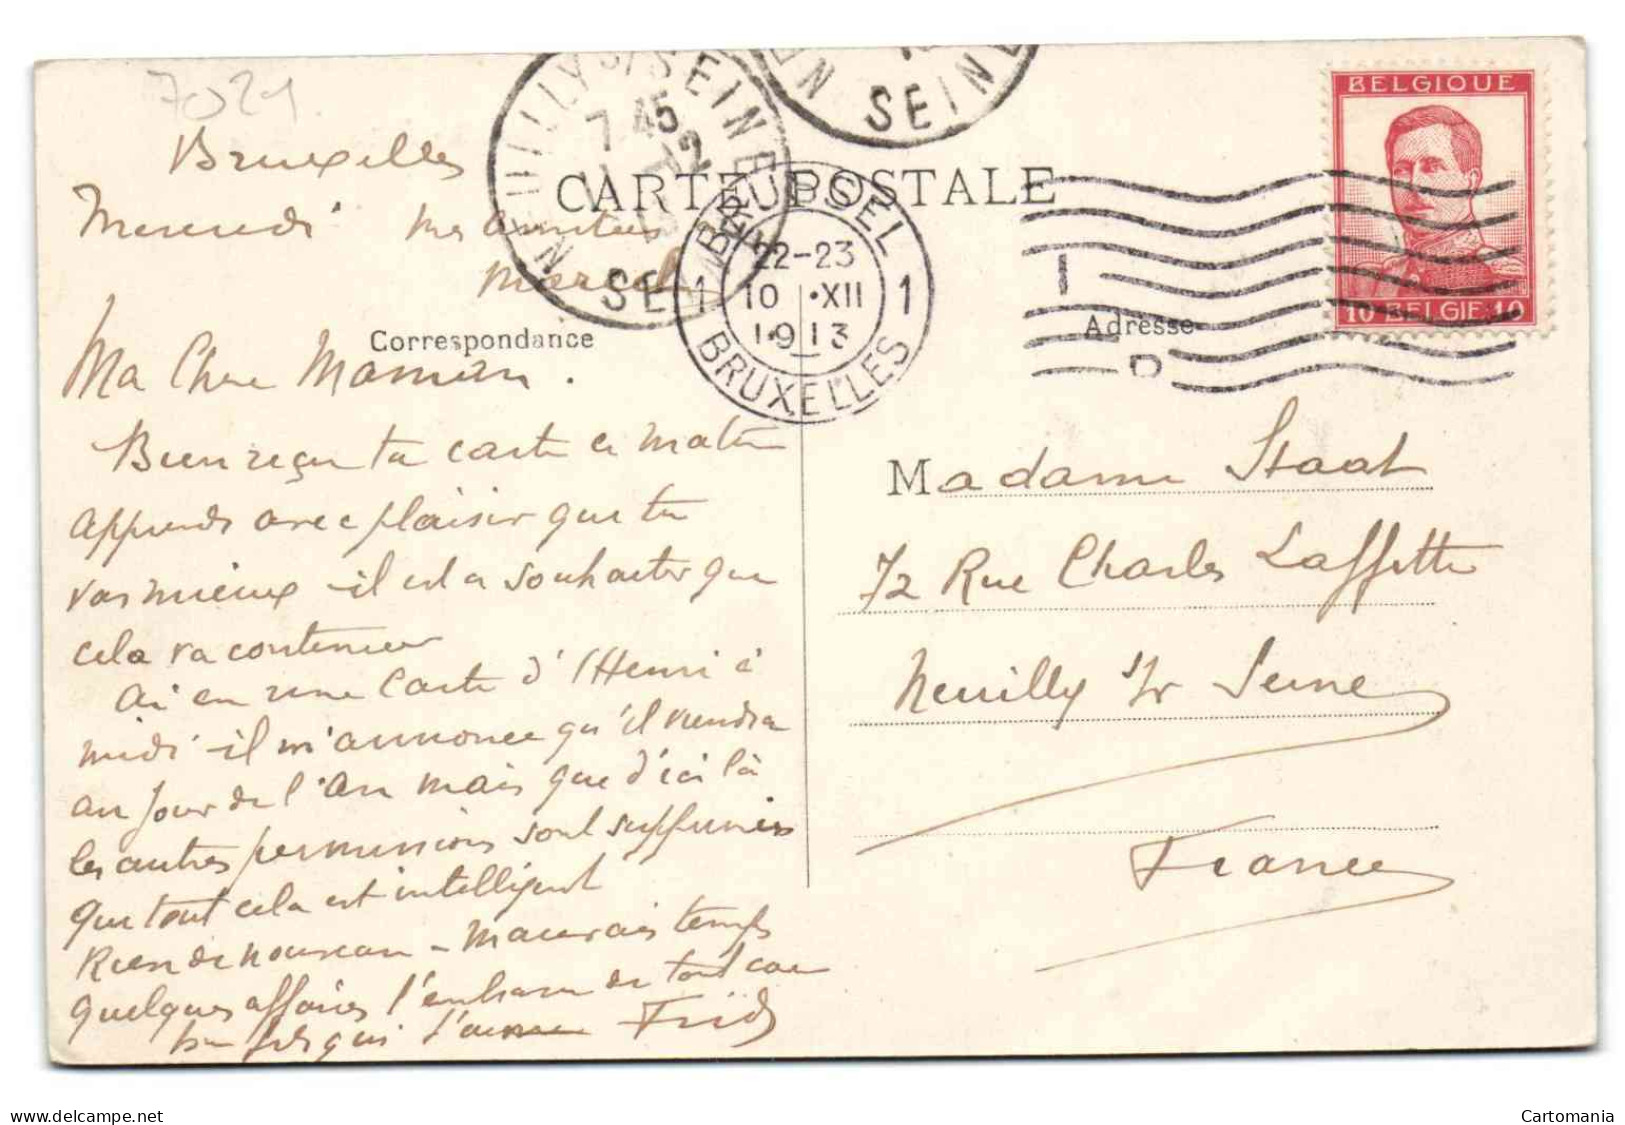 7029
Bruxelles
Mercredi mes amitiés
Marcel
CARTE POSTALE
Correspondance
Adresse
NEUILLY S/ SEINE
7 45
12
SEINE
SEINE
BRUSSEL
1 22-23 1
10 XII
1913
BRUXELLES
BELGIQUE
10 BELGIE 10
Ma Chère Maman.
Bien reçu ta carte ce matin
apprends avec plaisir que tu
vas mieux - il est à souhaiter que
cela va continuer
ai eu une carte d'Henri à
midi - il m'annonce qu'il viendra
au jour de l'an mais que d'ici là
les autres permissions sont supprimées
que tout cela est intelligent
Rien de nouveau - Mauvais temps
quelques affaires t'embrasse de tout cœur
ton fils qui t'aime
Madame Staat
72 Rue Charles Laffitte
Neuilly s/r Seine
France
Cartomania